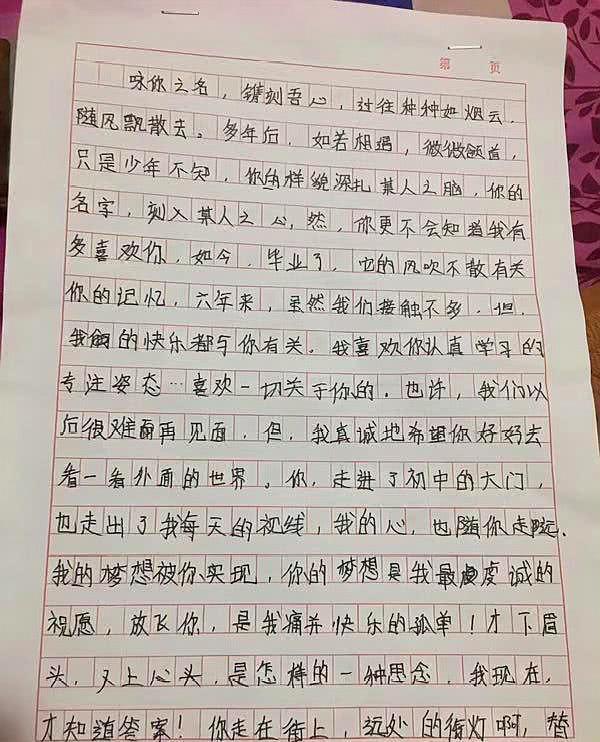 第 页
咏你之名，镌刻吾心，过往种种如烟云，
随风飘散去。多年后，如若相遇，微微颔首，
只是少年不知，你的样貌深扎某人之脑，你的
名字，刻入某人之心，然，你更不会知道我有
多喜欢你，如今，毕业了，它的风吹不散有关
你的记忆，六年来，虽然我们接触不多，但，
我的快乐都与你有关。我喜欢你认真学习的
专注姿态…喜欢一切关于你的。也许，我们以
后很难再见面，但，我真诚地希望你好好去
看一看外面的世界。你，走进了初中的大门，
也走出了我每天的视线，我的心，也随你走远.
我的梦想被你实现，你的梦想是我最虔诚的
祝愿，放飞你，是我痛并快乐的孤单！才下眉
头，又上心头，是怎样的一种思念，我现在，
才知道答案！你走在街上，远处的街灯啊，替